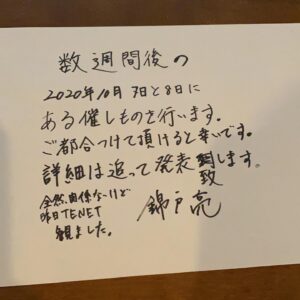 数週間後の
2020年10月7日と8日に
ある催しものを行います。
ご都合つけて頂けると幸いです。
詳細は追って発表致します。
全然関係ないけど
昨日TENET
観ました。
錦戸亮